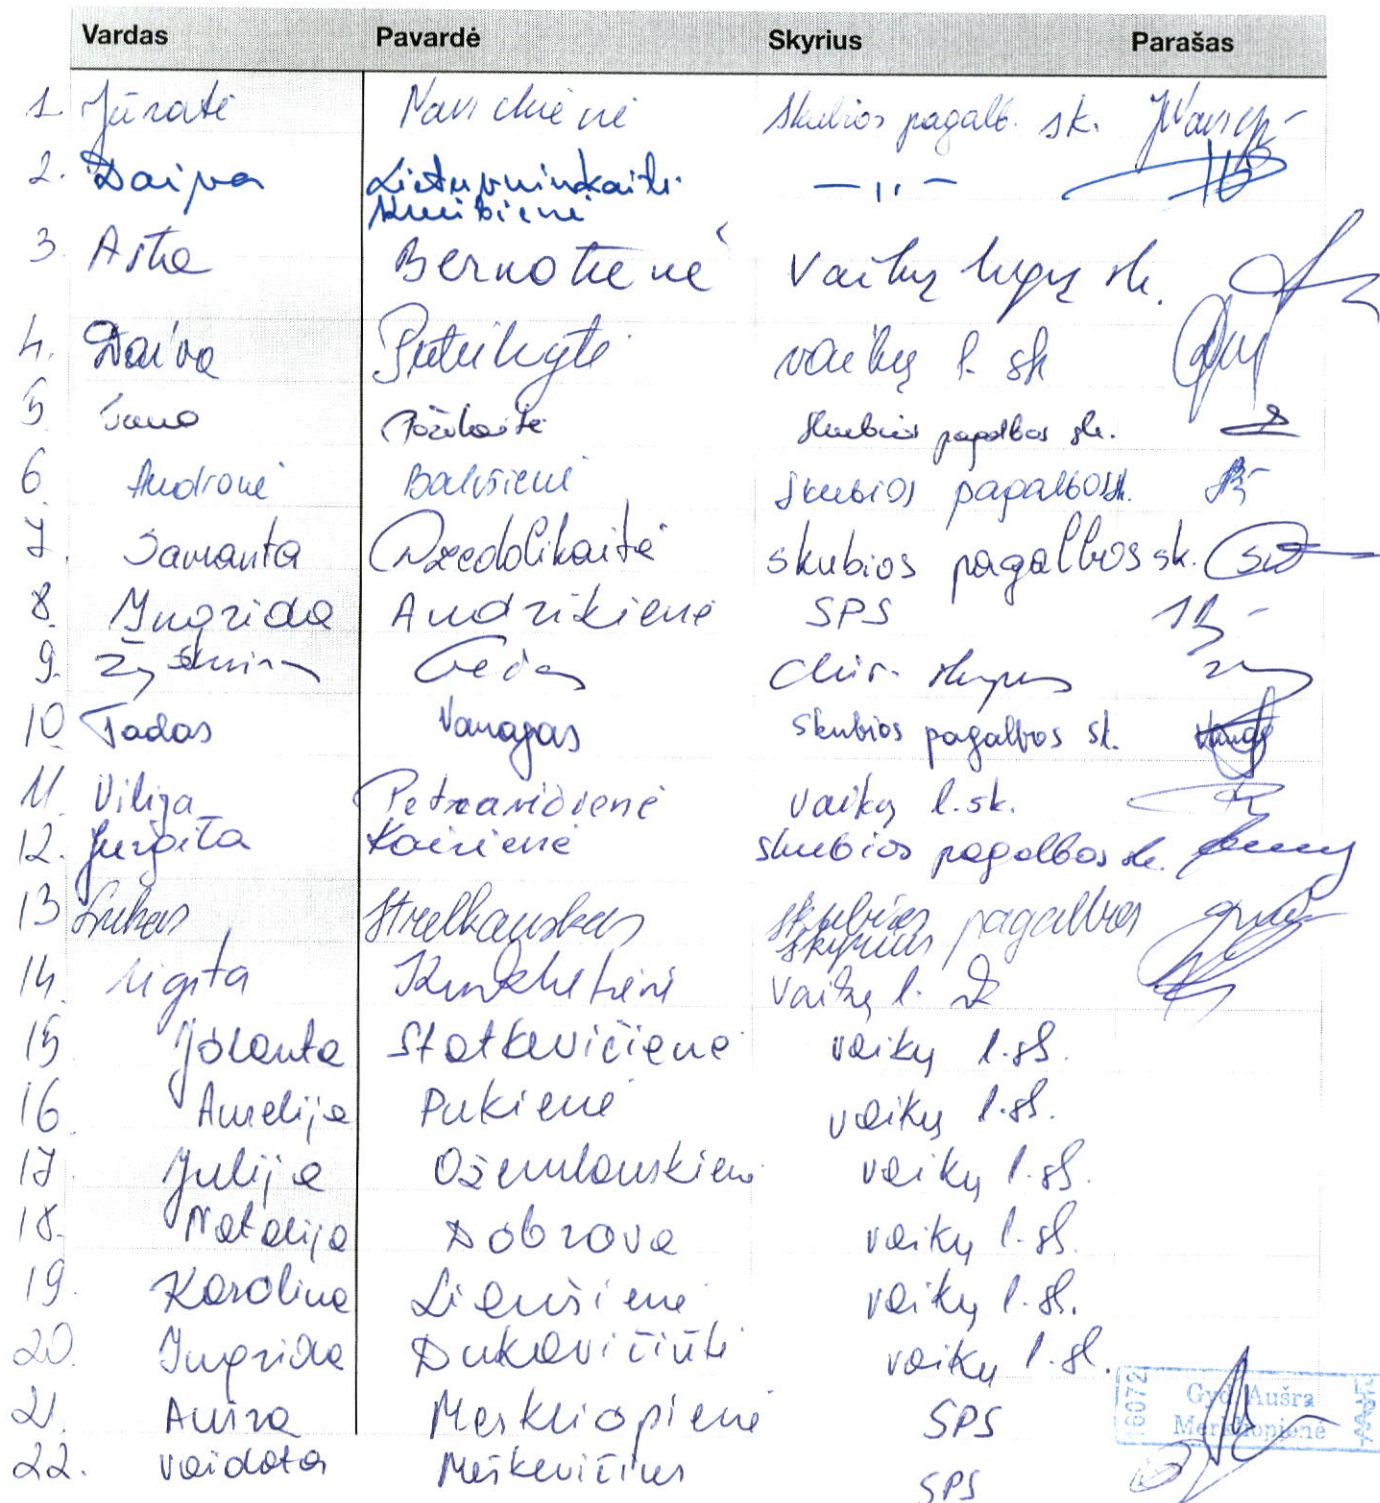 Vardas Pavardė Skyrius Parašas
1. Jūratė Skubios pagalb. sk.
2. Daiva Lietuvninkaitė - „ -
3. Asta Bernotienė Vaikų ligų sk.
4. Daiva Petrikytė vaikų l. sk
5 Skubios pagalbos sk.
6 Andronė Balvšienė Skubios pagalbos sk.
7. Samanta Dzedolikaitė skubios pagalbos sk.
8. Ingrida Andrikienė SPS
9. Chir. skyrius
10 Tadas Vanagas Skubios pagalbos sk.
11. Vilija Petravičienė Vaikų l. sk.
12. Jurgita Kairienė skubios pagalbos sk.
13 Lukas Strelkauskas skubios pagalbos
skyrius
14. Ligita Vaikų l. sk
15 Jolanta Statkevičienė vaikų l. sk.
16 Aurelija Pukienė vaikų l. sk.
17. Julija vaikų l. sk.
18. Natalija Dobrova vaikų l. sk.
19. Karolina vaikų l. sk.
20. Ingrida Dukavičiūtė vaikų l. sk.
21. Aušra Merkliopienė SPS
16072 Gyd. Aušra
Merkliopienė
22. Vaidotas Meškevičius SPS